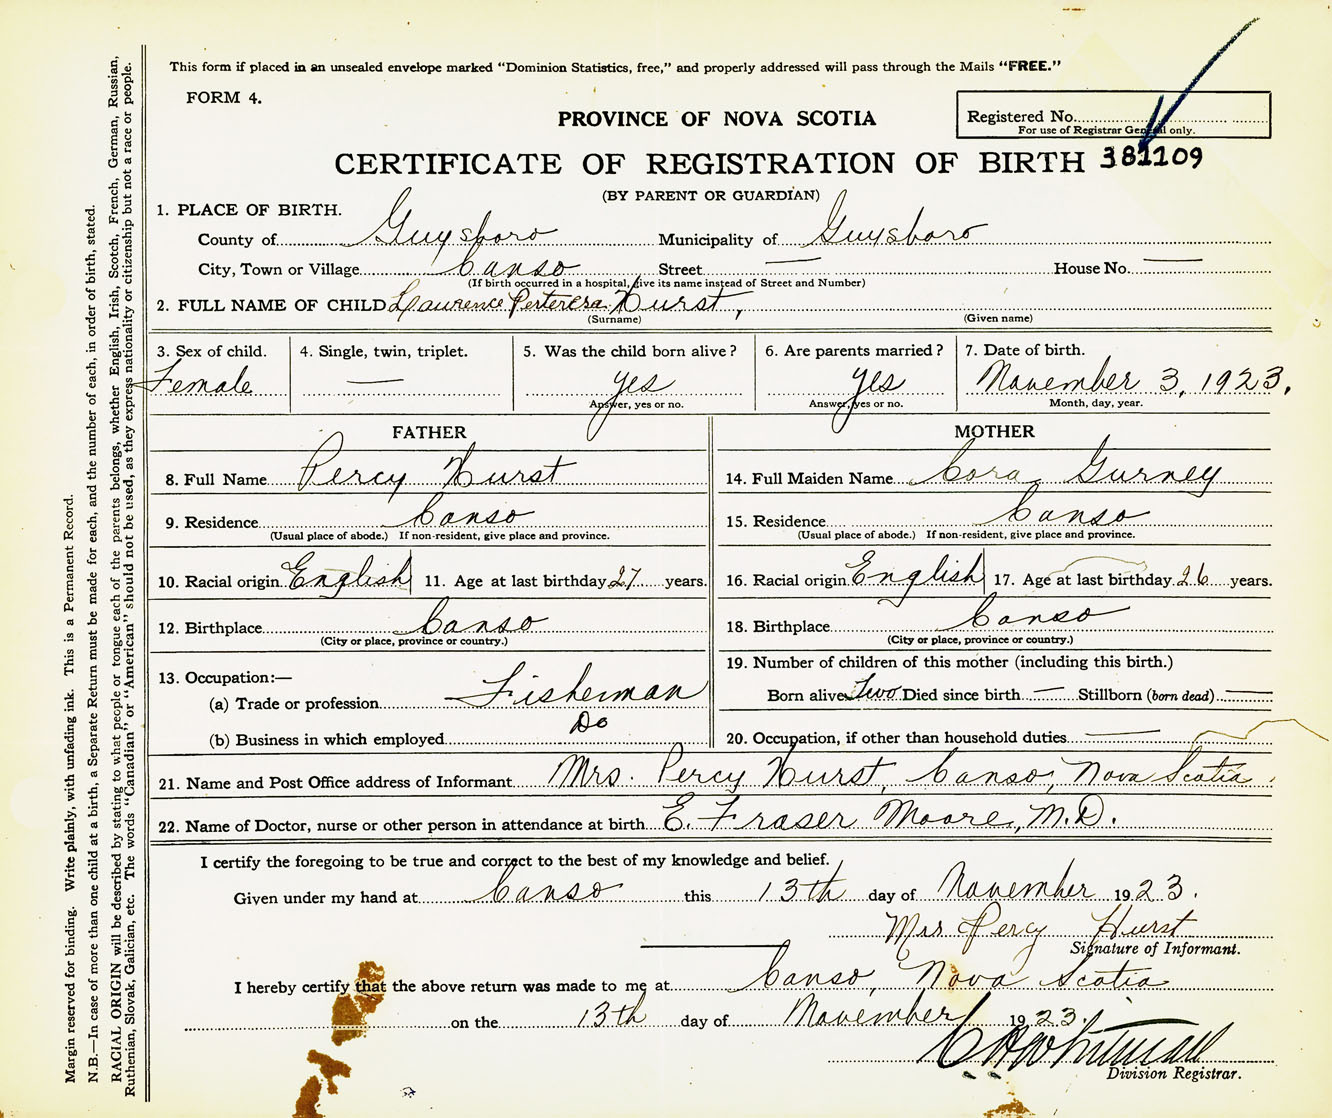 This form if placed in an unsealed envelope marked "Dominion Statistics, free," and properly addressed will pass through the Mails "FREE."
FORM 4.
PROVINCE OF NOVA SCOTIA
Registered No.
For use of Registrar General only.
CERTIFICATE OF REGISTRATION OF BIRTH 381109
(BY PARENT OR GUARDIAN)
1. PLACE OF BIRTH.
County of Guysboro Municipality of Guysboro
City, Town or Village Canso Street — House No. —
(If birth occurred in a hospital, give its name instead of Street and Number)
2. FULL NAME OF CHILD Laurence Hurst,
(Surname) (Given name)
3. Sex of child. 4. Single, twin, triplet. 5. Was the child born alive? 6. Are parents married? 7. Date of birth.
Female — yes yes November 3, 1923.
Answer, yes or no. Answer, yes or no. Month, day, year.
FATHER MOTHER
8. Full Name Percy Hurst 14. Full Maiden Name Cora Gurney
9. Residence Canso 15. Residence Canso
(Usual place of abode.) If non-resident, give place and province. (Usual place of abode.) If non-resident, give place and province.
10. Racial origin English 11. Age at last birthday 27 years. 16. Racial origin English 17. Age at last birthday 26 years.
12. Birthplace Canso 18. Birthplace Canso
(City or place, province or country.) (City or place, province or country.)
13. Occupation:— 19. Number of children of this mother (including this birth.)
(a) Trade or profession Fisherman Born alive Two Died since birth — Stillborn (born dead) —
(b) Business in which employed Do 20. Occupation, if other than household duties —
21. Name and Post Office address of Informant Mrs. Percy Hurst, Canso, Nova Scotia.
22. Name of Doctor, nurse or other person in attendance at birth E. Fraser Moore, M.D.
I certify the foregoing to be true and correct to the best of my knowledge and belief.
Given under my hand at Canso this 13th day of November 1923.
Mrs Percy Hurst
Signature of Informant.
I hereby certify that the above return was made to me at Canso, Nova Scotia
on the 13th day of November 1923.
Division Registrar.
Margin reserved for binding. Write plainly, with unfading ink. This is a Permanent Record.
N.B.—In case of more than one child at a birth, a Separate Return must be made for each, and the number of each, in order of birth, stated.
RACIAL ORIGIN will be described by stating to what people or tongue each of the parents belongs, whether English, Irish, Scotch, French, German, Russian,
Ruthenian, Slovak, Galician, etc. The words "Canadian" or "American" should not be used, as they express nationality or citizenship but not a race or people.